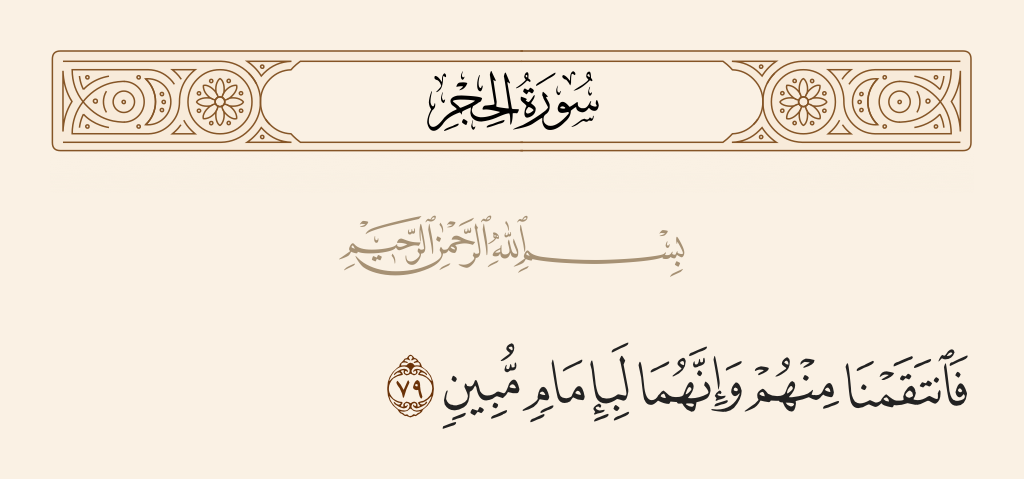 سُورَةُ الحِجْرِ
بِسْمِ ٱللَّهِ ٱلرَّحْمَٰنِ ٱلرَّحِيمِ
فَٱنتَقَمْنَا مِنْهُمْ وَإِنَّهُمَا لَبِإِمَامٍ مُّبِينٍ ٧٩